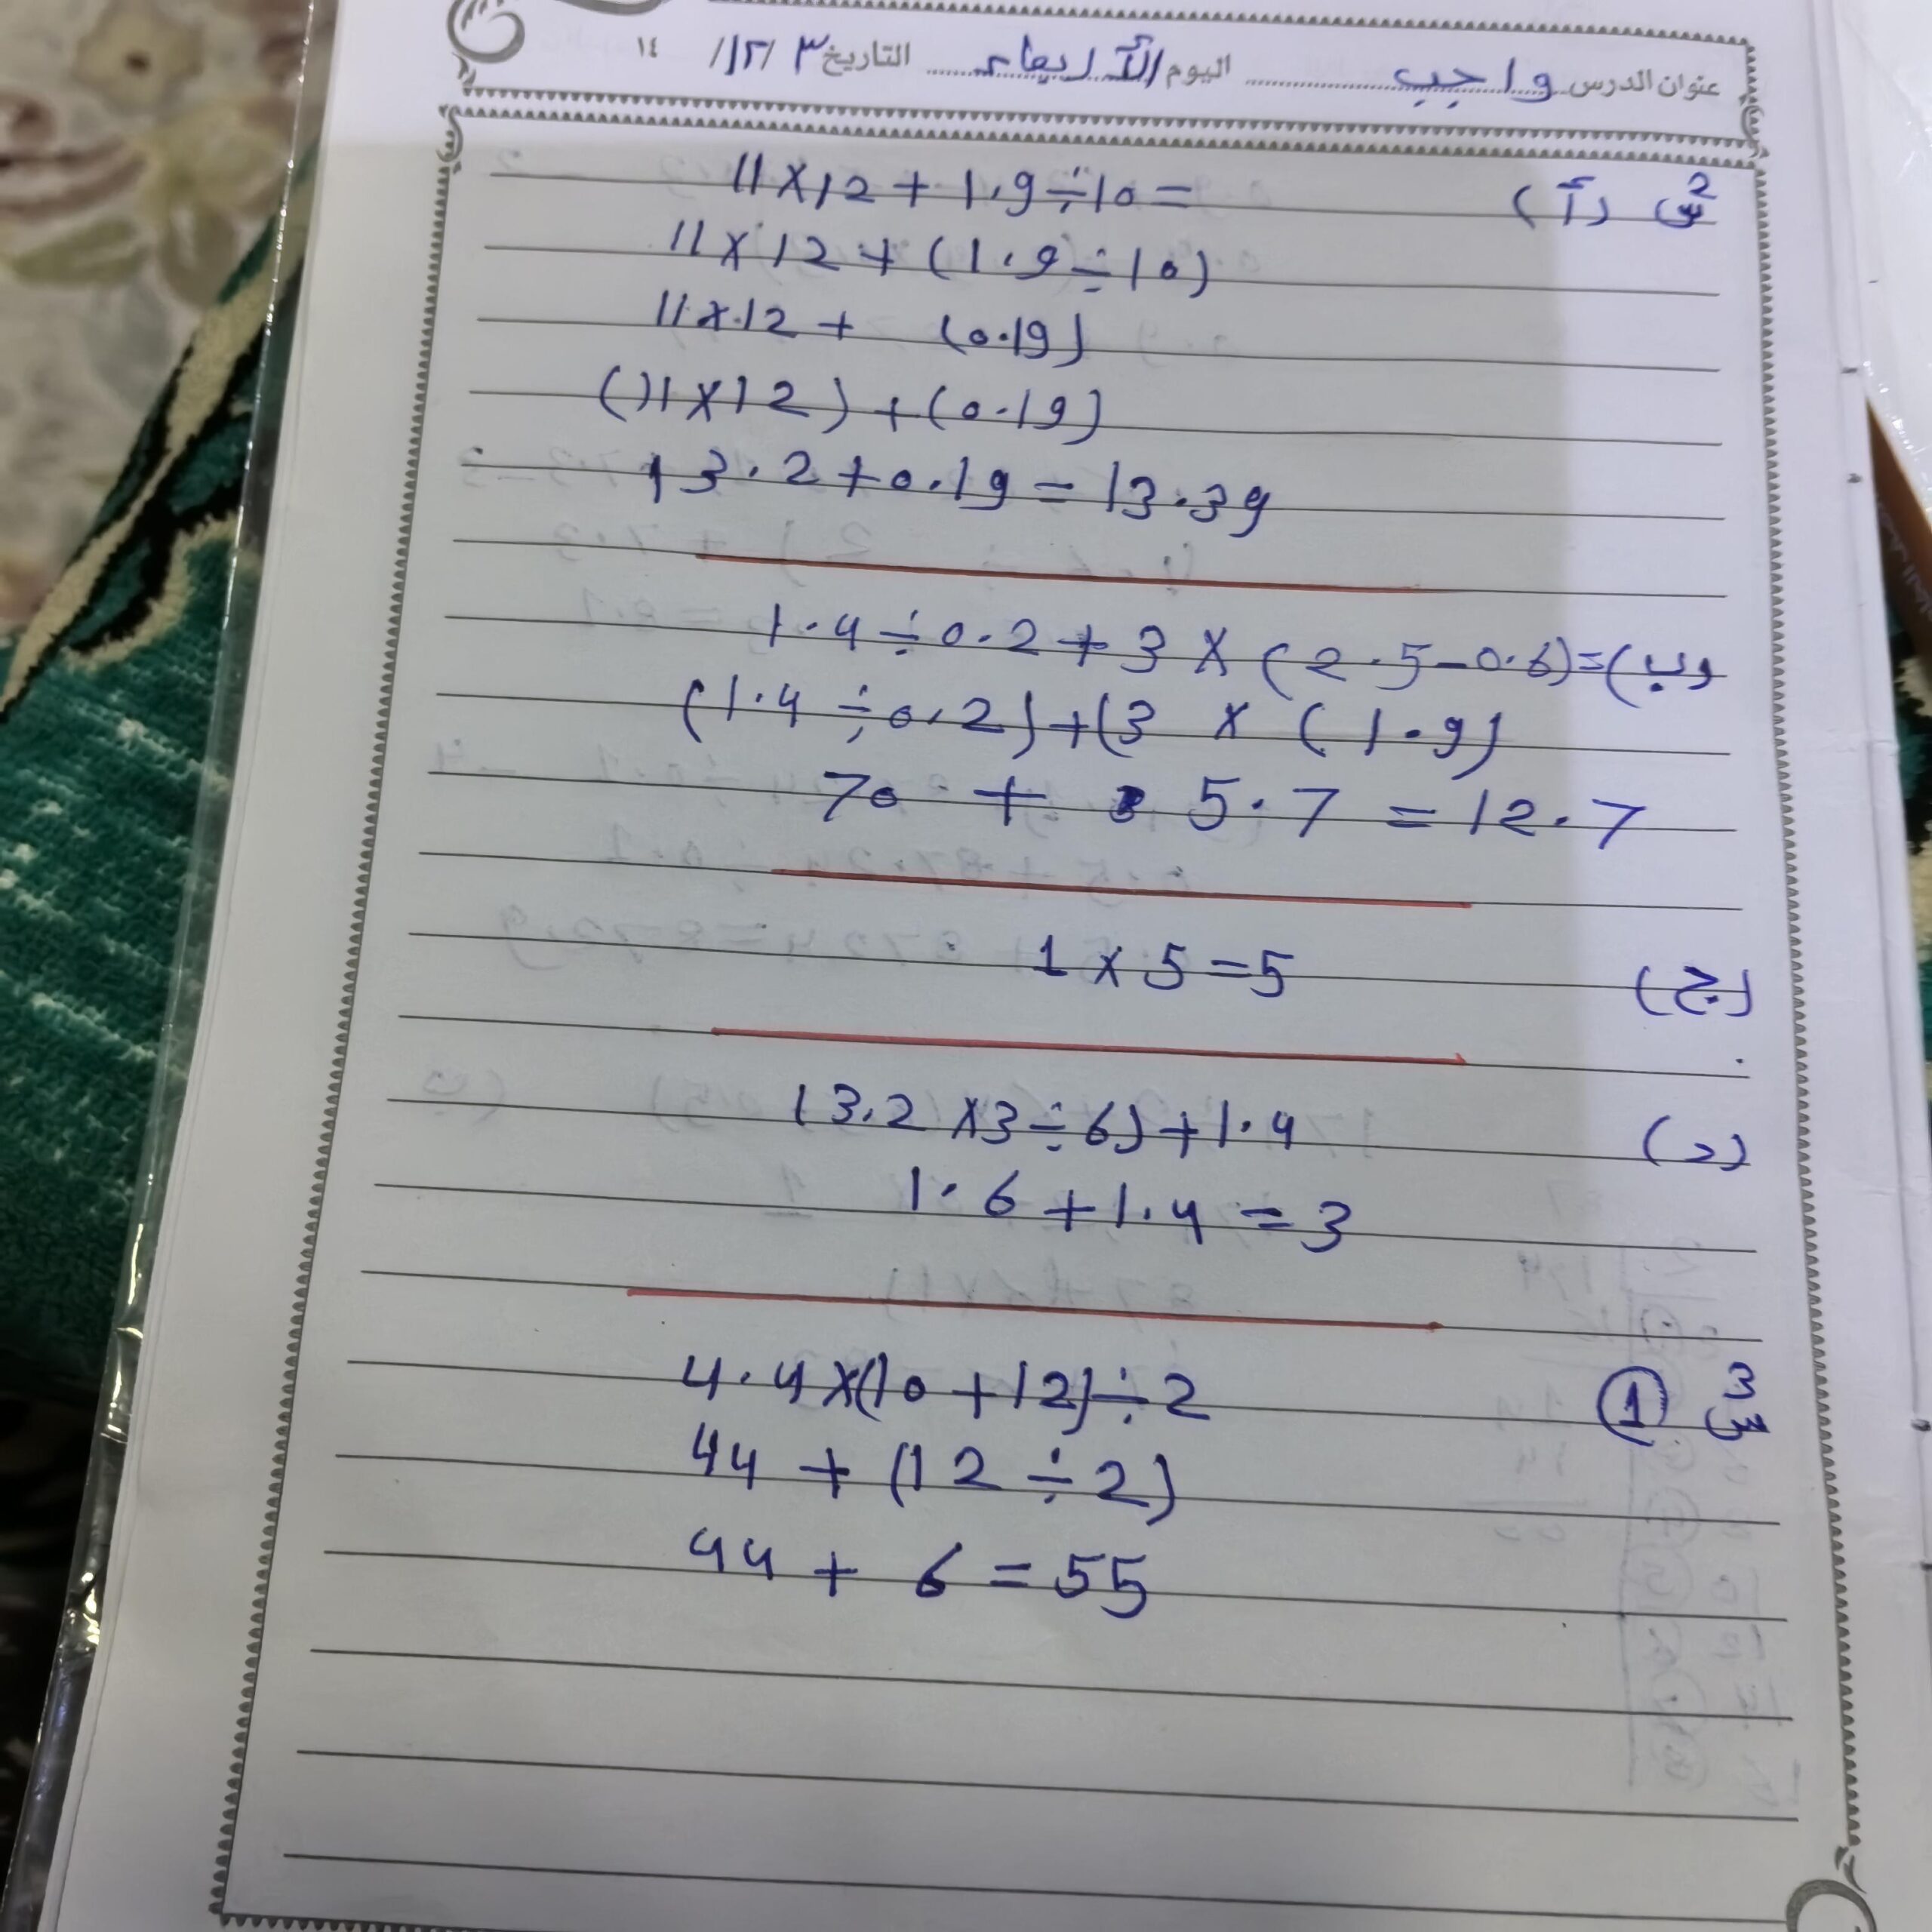 عنوان الدرس واجب اليوم الأربعاء التاريخ ٣ /١٢/ ١٤
س2 (أ) 11×12+1.9÷10=
11×12+(1.9÷10)
11×12+ (0.19)
(11×12)+(0.19)
13.2+0.19=13.39
(ب) 1.4÷0.2+3×(2.5-0.6)=
(1.4÷0.2)+(3 × (1.9)
70 + 5.7=12.7
(ج) 1×5=5
(د) (3.2×3÷6)+1.4
1.6+1.4=3
س3 1 4.4×(10+12)÷2
44+(12÷2)
44+6=55